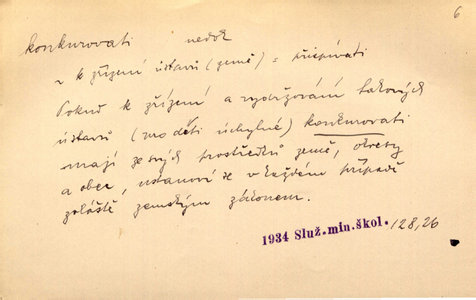 6
konkurovati nedok
~ k zřízení ústavů (země) = přispívati
Pokud k zřízení a vydržování takových
ústavů (pro děti úchylné) konkurovati
mají ze svých prostředků země, okresy
a obce, ustanoví se v každém případě
zvláště zemským zákonem.
1934 Služ.min.škol. 128,26